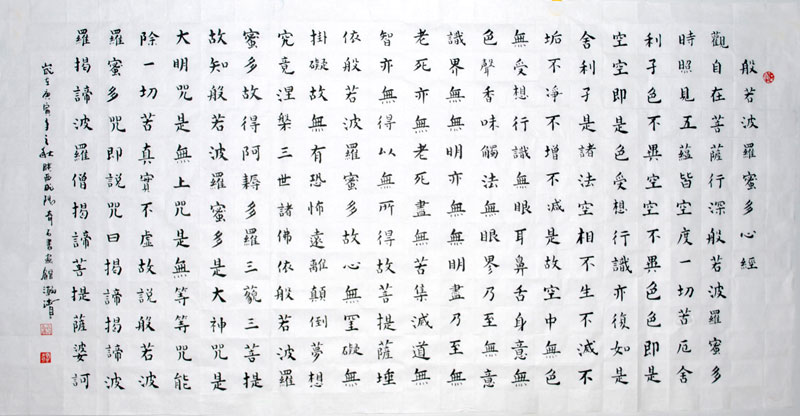 般若波羅蜜多心經
觀自在菩薩行深般若波羅蜜多
時照見五蘊皆空度一切苦厄舍
利子色不異空空不異色色即是
空空即是色受想行識亦復如是
舍利子是諸法空相不生不滅不
垢不淨不增不減是故空中無色
無受想行識無眼耳鼻舌身意無
色聲香味觸法無眼界乃至無意
識界無無明亦無無明盡乃至無
老死亦無老死盡無苦集滅道無
智亦無得以無所得故菩提薩埵
依般若波羅蜜多故心無罣礙無
掛礙故無有恐怖遠離顛倒夢想
究竟涅槃三世諸佛依般若波羅
蜜多故得阿耨多羅三藐三菩提
故知般若波羅蜜多是大神咒是
大明咒是無上咒是無等等咒能
除一切苦真實不虛故說般若波
羅蜜多咒即說咒曰揭諦揭諦波
羅揭諦波羅僧揭諦菩提薩婆訶
歲在庚寅年之秋陝西咸陽奇石書